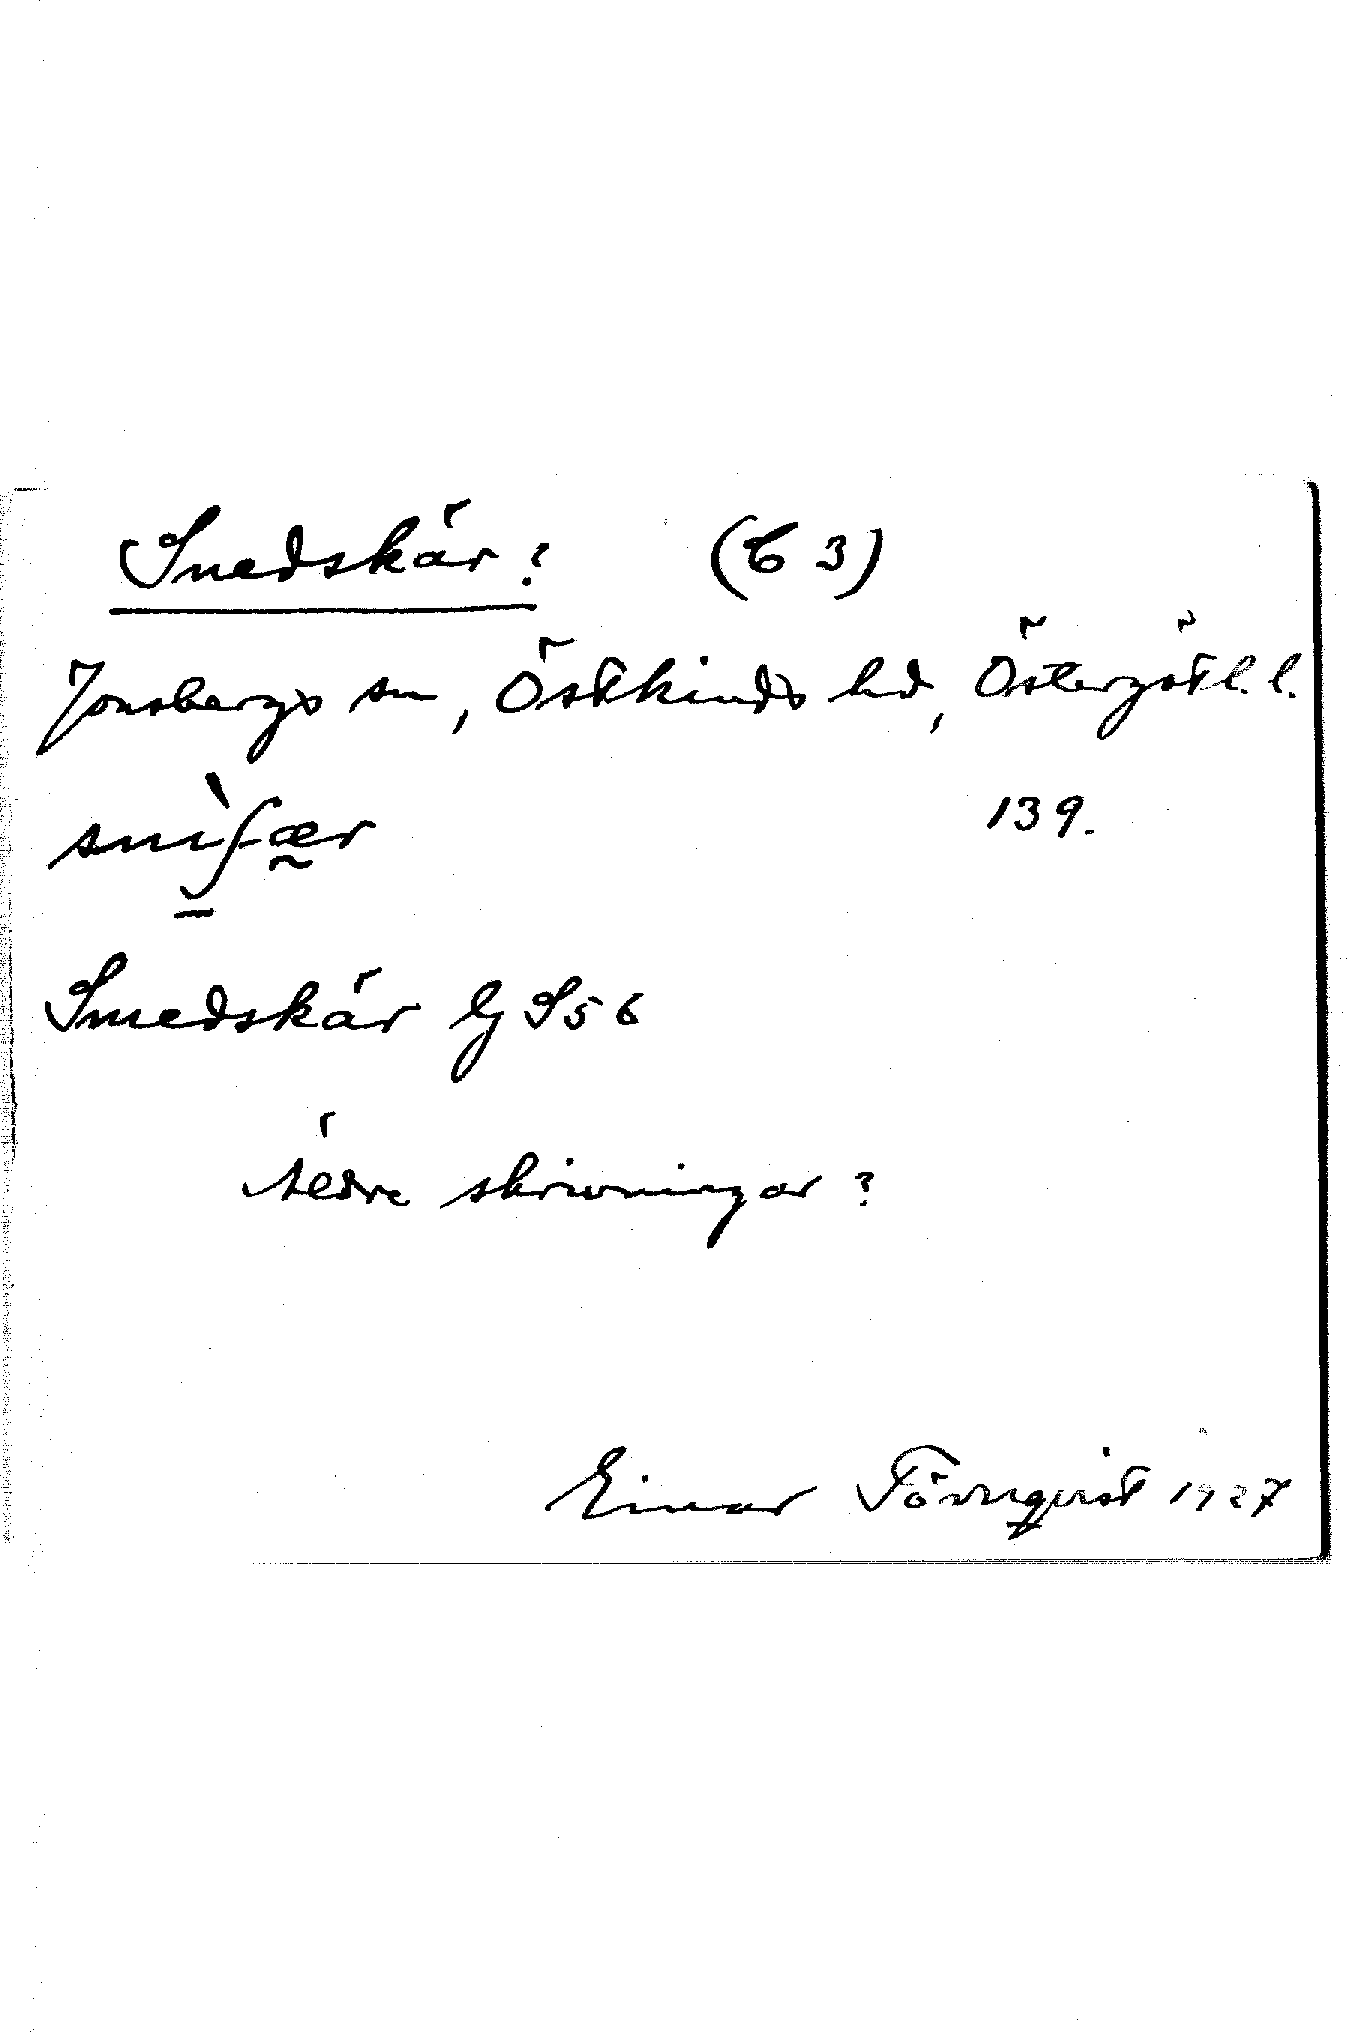 Snedskär? (C 3)
Jonsbergs sn, Östkinds hd, Östergötl. l.
snìʃær 139.
Smedskär GS56
Äldre skrivningar?
Einar Törnqvist 1927